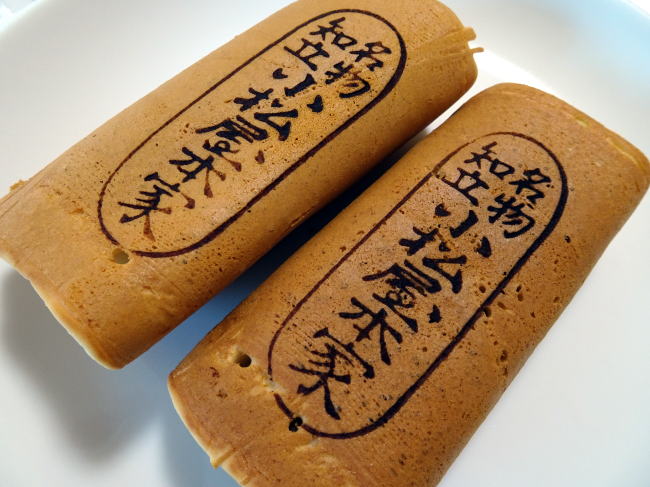 名物
知立
小松屋本家
名物
知立
小松屋本家